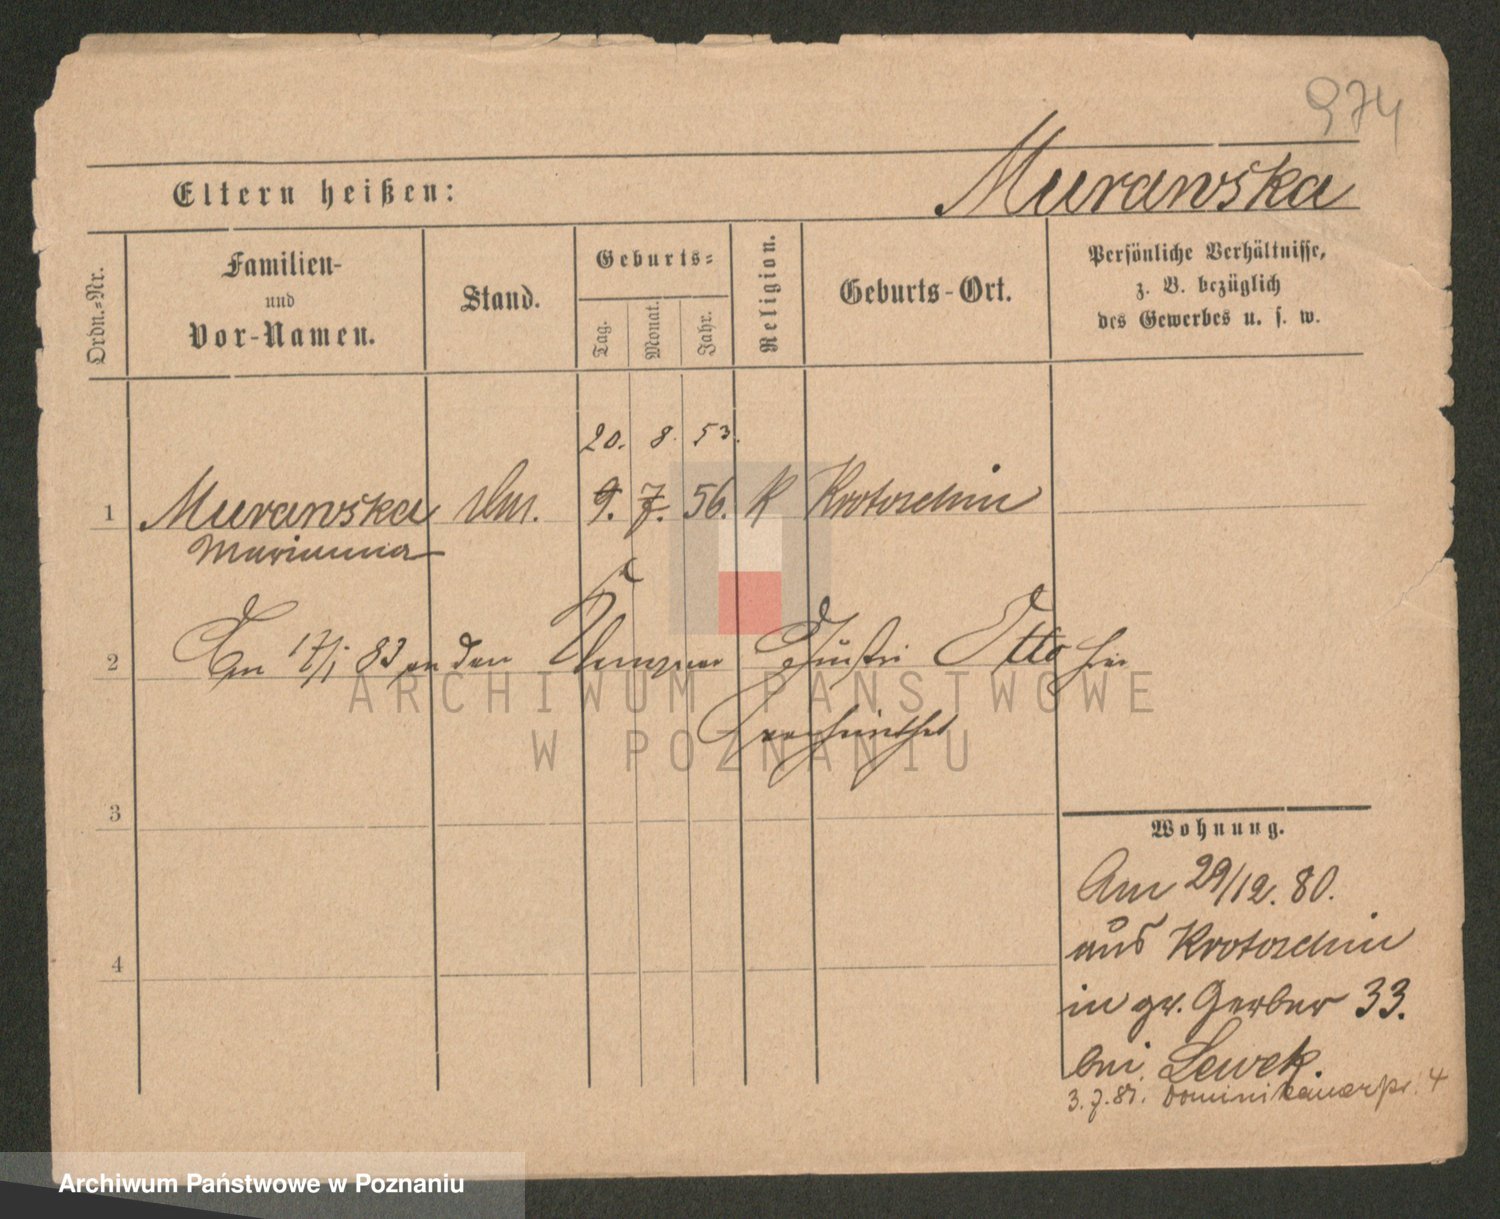 974
Eltern heißen: Murawska
Ordn.-Nr.
Familien-
und
Vor-Namen.
Stand.
Geburts-
Tag.
Monat.
Jahr.
Religion.
Geburts-Ort.
Persönliche Verhältnisse,
z. B. bezüglich
des Gewerbes u. s. w.
20. 8. 53.
1 Murawska 9. 7. 56. K Krotoschin
Marianna
2 Am 17/1 83 an den Otto hier
verheirathet
3
4
Wohnung.
Am 29/12. 80.
aus Krotoschin
in gr. Gerber 33.
bei Lewek.
3.7.81. Dominikanerstr. 4
ARCHIWUM PAŃSTWOWE
W POZNANIU
Archiwum Państwowe w Poznaniu